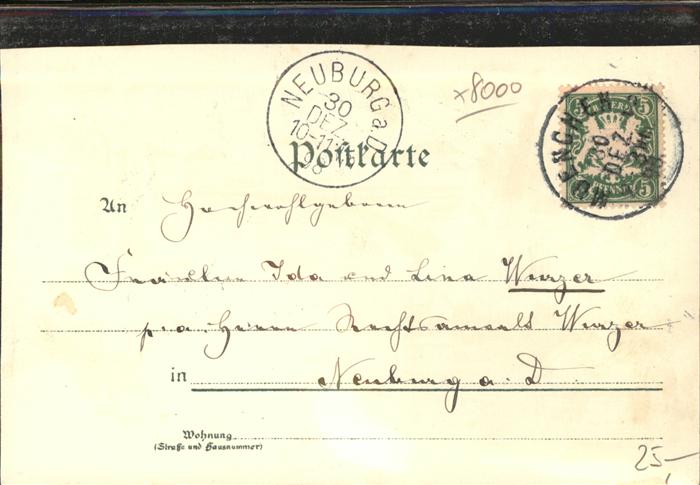 NEUBURG a. D.
30
DEZ
10-11
98
x8000
MUENCHEN
30
DEZ
BAYERN
5 PFENNIG 5
Postkarte
An Hochwohlgeboren
Fräulein Ida und Lina Wurzer
p. a. Herrn Rechtsanwalt Wurzer
in Neuburg a. D
Wohnung
(Straße und Hausnummer)
25,-